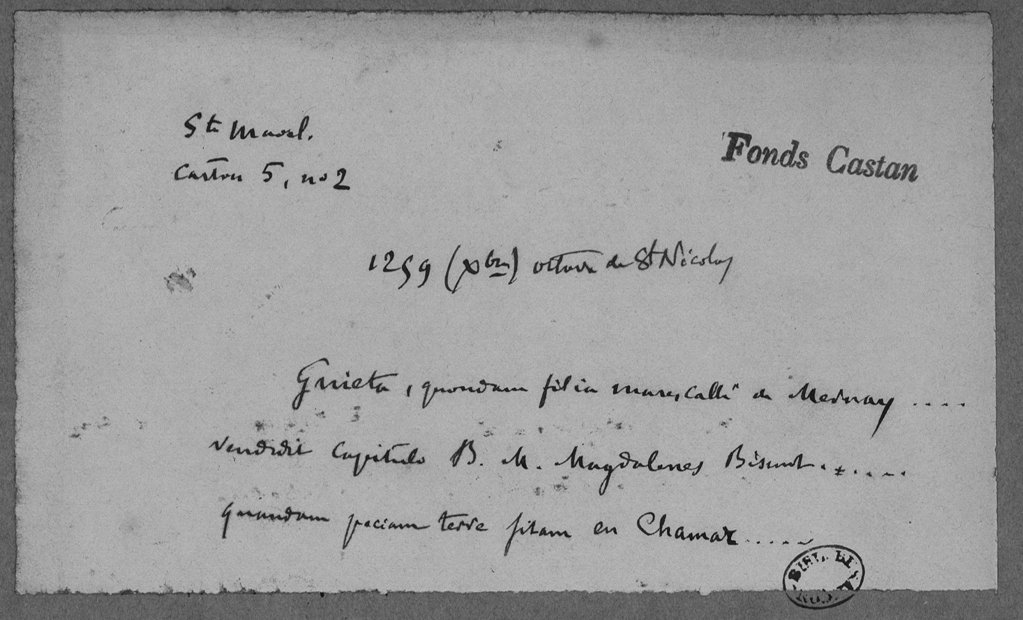 Ste Magd.
Carton 5, no 2
Fonds Castan
1259 (Xbre) octave de St Nicolas
Guieta, quondam filia marescalli de Mernay ....
vendidit Capitulo B. M. Magdalenes Bisunt. ......
quandam peciam terre sitam en Chamar .....